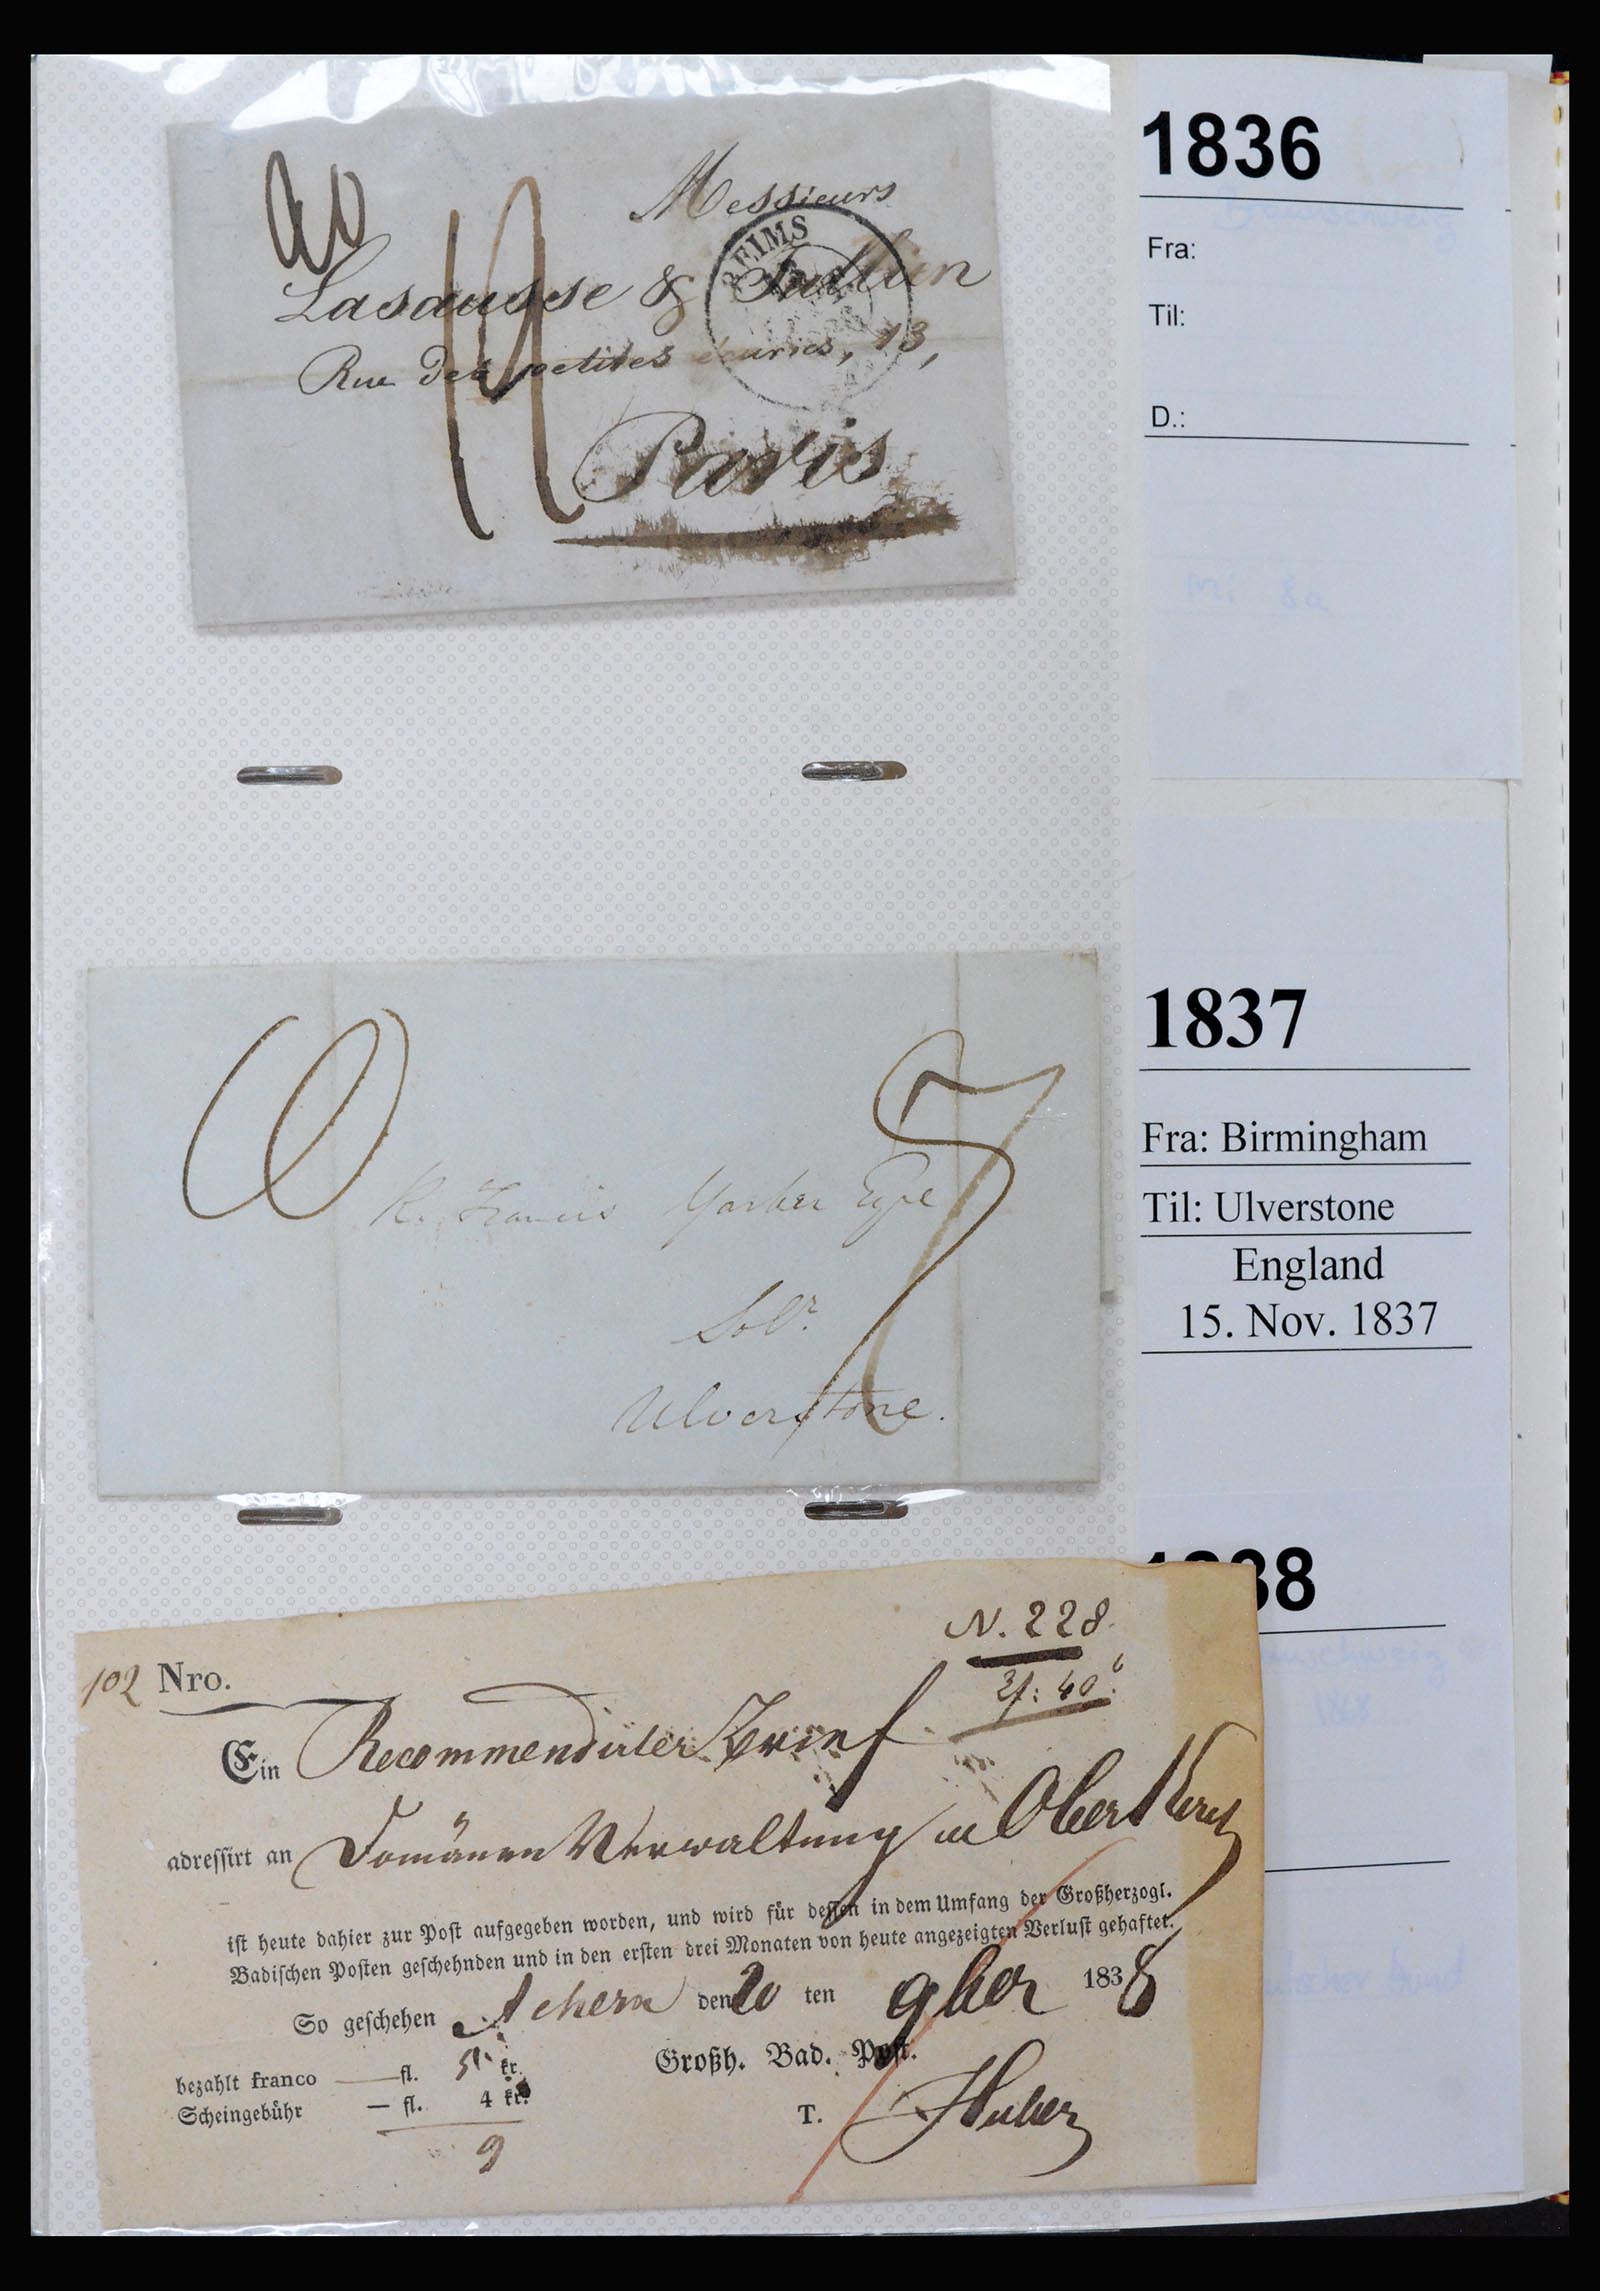 Messieurs
REIMS
Lasausse &
Rue des petites écuries, 13,
Paris
1836
Fra:
Til:
D.:
Mi 8a
1837
Fra: Birmingham
Til: Ulverstone
England
15. Nov. 1837
Francis Yarker Esqre
Solr.
Ulverstone.
N. 228.
102 Nro.
Ein Recommendirter Brief
adressirt an Domänen Verwaltung in Oberkirch
ist heute dahier zur Post aufgegeben worden, und wird für dessen in dem Umfang der Großherzogl.
Badischen Posten geschehnden und in den ersten drei Monaten von heute angezeigten Verlust gehaftet.
So geschehen Achern den 20 ten 9ber 1838
Großh. Bad. Post.
bezahlt franco — fl. 5 kr.
Scheingebühr — fl. 4 kr.
9
T. Huber
38
1868